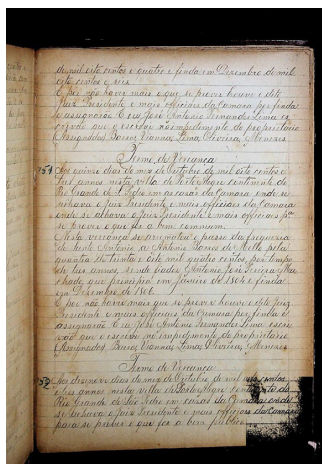 de mil oito centos e quatro e finda em Dezembro de mil
oito centos e seis.
E por não haver mais o que se prover houve o dito
Juiz Presidente e mais officiaes da Camara por finda
e assignarão. E eu José Antonio Fernandes Lima es
crivão que o escrevi no impedimento do proprietario
(Assignados) Barros, Vianna, Lima, Oliveira, Menezes
Termo de Vereança
Aos quinze dias do mez de Outubro de mil oito centos e
tres annos nesta villa de Porto Alegre continente do
Rio Grande de S. Pedro em as casas da Camara onde se
achava o Juiz Presidente e mais officiaes da Camara
onde se achava o Juiz Presidente e mais officiaes pª
se prover o que fôr a bem commum.
Nesta vereança se arrematou o passo da freguesia
de Santo Antonio a Antonio Nunes de Mello pela
quantia de trinta e oito mil quatro centos, por tempo
de tres annos, sendo fiador Antonio José Pereira Ma
chado, que principia em Janeiro de 1804 e finda
em Dezembro de 1806.
E por não haver mais que se prover houve o dito Juiz
Presidente e mais officiaes da Camara por finda e
assignarão. E eu José Antonio Fernandes Lima escri
vão que o escrevi no impedimento do proprietario
(Assignados) Barros, Vianna, Lima, Oliveira, Menezes
Termo de Vereança
Aos desenove dias do mez de Outubro de mil oito centos
e tres annos nesta villa de Porto Alegre continente do
Rio Grande de São Pedro em casas da Camara onde
se achava o Juiz Presidente e mais officiaes da Camara
para se prover o que fôr a bem publico